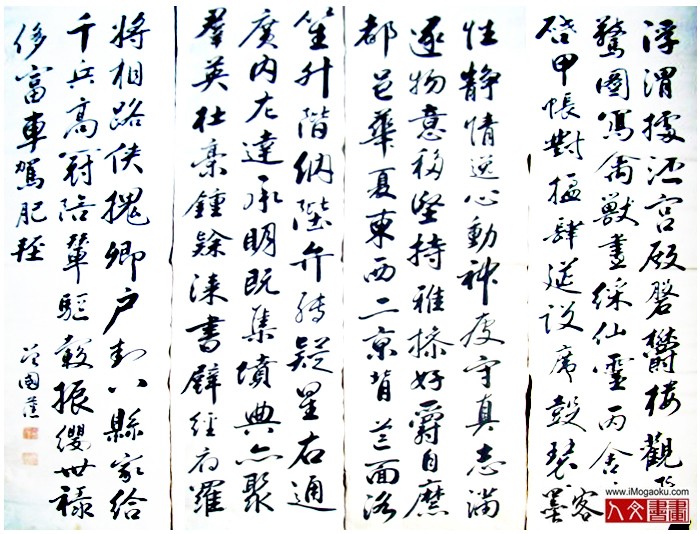 浮渭據涇宫殿磐欝樓觀
驚圖寫禽獸畫綵仙靈丙舍
啓甲帳對楹肆筵設席鼓瑟
性靜情逸心動神疲守真志滿
逐物意移堅持雅操好爵自縻
都邑華夏東西二京背芒面洛
笙升階納陛弁轉疑星右通
廣内左達承明既集墳典亦聚
羣英杜稾鍾隸漆書壁經府羅
將相路俠槐卿户封八縣家給
千兵高冠陪輦驅轂振纓世禄
侈富車駕肥輕
國
墨客
www.iMogaoku.com
人文書畫